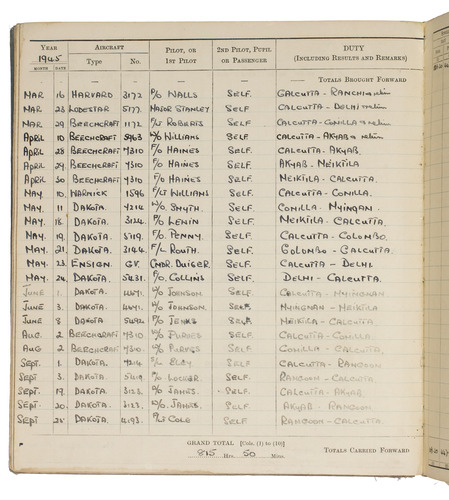 YEAR 1945 AIRCRAFT PILOT, OR 1ST PILOT 2ND PILOT, PUPIL OR PASSENGER DUTY (INCLUDING RESULTS AND REMARKS)
MONTH DATE Type No.
— — — — — TOTALS BROUGHT FORWARD
MAR 16 HARVARD 3172 P/O NALLS SELF. CALCUTTA - RANCHI & return
MAR 23 LODESTAR 5177. MAJOR STANLEY SELF. CALCUTTA - DELHI return
MAR 29 BEECHCRAFT 1172. ROBERTS SELF. CALCUTTA - COMILLA & return
APRIL 10 BEECHCRAFT WILLIAMS SELF. CALCUTTA - AKYAB & return
APRIL 28 BEECHCRAFT 4310 F/O HAINES SELF. CALCUTTA - AKYAB.
APRIL 29 BEECHCRAFT 4310 F/O HAINES SELF. AKYAB - MEIKTILA
APRIL 30 BEECHCRAFT 4310 F/O HAINES SELF. MEIKTILA - CALCUTTA.
MAY 10. WARWICK 1596 F/LT WILLIAMS SELF. CALCUTTA - COMILLA.
MAY. 11 DAKOTA. 4214 W/O SMYTH. SELF. COMILLA - MYINGAN.
MAY. 18. DAKOTA. 3124. LENIN SELF. MEIKTILA - CALCUTTA.
MAY. 19. DAKOTA. 8119. F/O. PENNY. SELF. CALCUTTA - COLOMBO.
MAY. 21. DAKOTA. 3144. F/L ROUTH. SELF. COLOMBO - CALCUTTA.
MAY. 23. ENSIGN GV. CMDR. DUIGER. SELF. CALCUTTA - DELHI.
MAY. 24. DAKOTA. 5431. F/O. COLLINS SELF. DELHI - CALCUTTA.
JUNE 1. DAKOTA. W/O JOHNSON SELF. CALCUTTA - MYINGNAN
JUNE 3. DAKOTA. W/O JOHNSON. SELF. MYINGNAN - MEIKTILA
JUNE 8 DAKOTA. 5492 JENKS SELF. MEIKTILA - CALCUTTA
AUG. 2 BEECHCRAFT 4310 PURVES SELF CALCUTTA - COMILLA
AUG 2 BEECHCRAFT 4310 PURVES SELF COMILLA - CALCUTTA.
SEPT. 1. DAKOTA. 4214 SELF. CALCUTTA - RANGOON
SEPT 3. DAKOTA. SELF RANGOON - CALCUTTA
SEPT. 19. DAKOTA. 3123. JAMES. SELF CALCUTTA - AKYAB.
SEPT. 20. DAKOTA. 3123. W/O. JAMES. SELF AKYAB - RANGOON.
SEPT DAKOTA. 4193. COLE SELF RANGOON - CALCUTTA.
GRAND TOTAL [Cols. (1) to (10)]
815 Hrs. 50 Mins. TOTALS CARRIED FORWARD